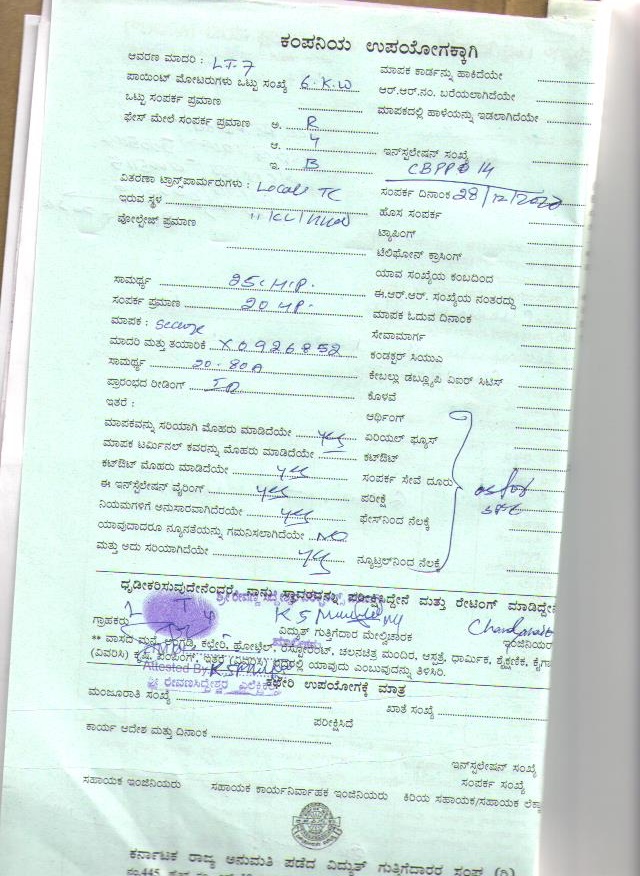 ಕಂಪನಿಯ ಉಪಯೋಗಕ್ಕಾಗಿ
ಆವರಣ ಮಾದರಿ : LT-7
ಮಾಪಕ ಕಾರ್ಡನ್ನು ಹಾಕಿದೆಯೇ
ಪಾಯಿಂಟ್ ಮೋಟರುಗಳು ಒಟ್ಟು ಸಂಖ್ಯೆ 6.K.W
ಆರ್.ಆರ್.ನಂ. ಬರೆಯಲಾಗಿದೆಯೇ
ಒಟ್ಟು ಸಂಪರ್ಕ ಪ್ರಮಾಣ
ಮಾಪಕದಲ್ಲಿ ಹಾಳೆಯನ್ನು ಇಡಲಾಗಿದೆಯೇ
ಫೇಸ್ ಮೇಲೆ ಸಂಪರ್ಕ ಪ್ರಮಾಣ ಅ. R
ಆ. Y
ಇನ್‌ಸ್ಟಲೇಷನ್ ಸಂಖ್ಯೆ
ಇ. B
CBPP 14
ವಿತರಣಾ ಟ್ರಾನ್ಸ್‌ಪಾರ್ಮರುಗಳು : Locale TC
ಸಂಪರ್ಕ ದಿನಾಂಕ 28/12/2020
ಇರುವ ಸ್ಥಳ
ಹೊಸ ಸಂಪರ್ಕ
ವೋಲ್ಟೇಜ್ ಪ್ರಮಾಣ
ಟ್ಯಾಪಿಂಗ್
ಟೆಲಿಫೋನ್ ಕ್ರಾಸಿಂಗ್
ಯಾವ ಸಂಖ್ಯೆಯ ಕಂಬದಿಂದ
ಸಾಮರ್ಥ್ಯ 25.H.P.
ಈ.ಆರ್.ಆರ್. ಸಂಖ್ಯೆಯ ನಂತರದ್ದು
ಸಂಪರ್ಕ ಪ್ರಮಾಣ 20 HP.
ಮಾಪಕ ಓದುವ ದಿನಾಂಕ
ಮಾಪಕ : Secure
ಸೇವಾಮಾರ್ಗ
ಮಾದರಿ ಮತ್ತು ತಯಾರಿಕೆ X0926852
ಕಂಡಕ್ಟರ್ ಸಿಯುಎ
ಸಾಮರ್ಥ್ಯ 20-80A
ಕೇಬಲ್ಲು ಡಬ್ಲ್ಯೂಪಿ ಏಐರ್ ಸಿಟಿಸ್
ಪ್ರಾರಂಭದ ರೀಡಿಂಗ್ IR
ಕೊಳವೆ
ಇತರೆ :
ಆರ್ಥಿಂಗ್
ಮಾಪಕವನ್ನು ಸರಿಯಾಗಿ ಮೊಹರು ಮಾಡಿದೆಯೇ yes
ಏರಿಯಲ್ ಫ್ಯೂಸ್
ಮಾಪಕ ಟರ್ಮಿನಲ್ ಕವರನ್ನು ಮೊಹರು ಮಾಡಿದೆಯೇ yes
ಕಟ್‌ಔಟ್
ಕಟ್‌ಔಟ್ ಮೊಹರು ಮಾಡಿದೆಯೇ yes
ಸಂಪರ್ಕ ಸೇವೆ ದೂರು
ಈ ಇನ್‌ಸ್ಟೆಲೇಷನ್ ವೈರಿಂಗ್ yes
ಪರೀಕ್ಷೆ
ನಿಯಮಗಳಿಗೆ ಅನುಸಾರವಾಗಿದೆಯೇ yes
ಫೇಸ್‌ನಿಂದ ನೆಲಕ್ಕೆ
ಯಾವುದಾದರೂ ನ್ಯೂನತೆಯನ್ನು ಗಮನಿಸಲಾಗಿದೆಯೇ NO
ಮತ್ತು ಅದು ಸರಿಯಾಗಿದೆಯೇ yes
ನ್ಯೂಟ್ರಲ್‌ನಿಂದ ನೆಲಕ್ಕೆ
ಧೃಡೀಕರಿಸುವುದೇನೆಂದರೆ, ನಾನು ಸ್ಥಾವರವನ್ನು ಪರೀಕ್ಷಿಸಿದ್ದೇನೆ ಮತ್ತು ರೇಟಿಂಗ್ ಮಾಡಿದ್ದೇನೆ
ಗ್ರಾಹಕರು
ವಿದ್ಯುತ್ ಗುತ್ತಿಗೆದಾರ ಮೇಲ್ವಿಚಾರಕ
ಇಂಜಿನಿಯರ
** ವಾಸದ ಮನೆ, ಅಂಗಡಿ, ಕಛೇರಿ, ಹೋಟೆಲ್, ರೆಸ್ಟೋರೆಂಟ್, ಚಲನಚಿತ್ರ ಮಂದಿರ, ಆಸ್ಪತ್ರೆ, ಧಾರ್ಮಿಕ, ಶೈಕ್ಷಣಿಕ, ಕೈಗಾ
(ವಿವರಿಸಿ) ಕೃಷಿ, ಪಂಪಿಂಗ್, ಇತರೆ (ವಿವರಿಸಿ) ಇದರಲ್ಲಿ ಯಾವುದು ಎಂಬುವುದನ್ನು ತಿಳಿಸಿರಿ.
Attested By
ಕಛೇರಿ ಉಪಯೋಗಕ್ಕೆ ಮಾತ್ರ
ಶ್ರೀ ರೇವಣಸಿದ್ದೇಶ್ವರ ಎಲೆಕ್ಟ್ರಿಕಲ್
ಮಂಜೂರಾತಿ ಸಂಖ್ಯೆ
ಖಾತೆ ಸಂಖ್ಯೆ
ಪರೀಕ್ಷಿಸಿದೆ
ಕಾರ್ಯ ಆದೇಶ ಮತ್ತು ದಿನಾಂಕ
ಇನ್‌ಸ್ಟಲೇಷನ್ ಸಂಖ್ಯೆ
ಸಂಪರ್ಕ ಸಂಖ್ಯೆ
ಸಹಾಯಕ ಇಂಜಿನಿಯರು
ಸಹಾಯಕ ಕಾರ್ಯನಿರ್ವಾಹಕ ಇಂಜಿನಿಯರು
ಕಿರಿಯ ಸಹಾಯಕ/ಸಹಾಯಕ ಲೆಕ್ಕಾ
ಕರ್ನಾಟಕ ರಾಜ್ಯ ಅನುಮತಿ ಪಡೆದ ವಿದ್ಯುತ್ ಗುತ್ತಿಗೆದಾರರ ಸಂಘ (ರಿ)